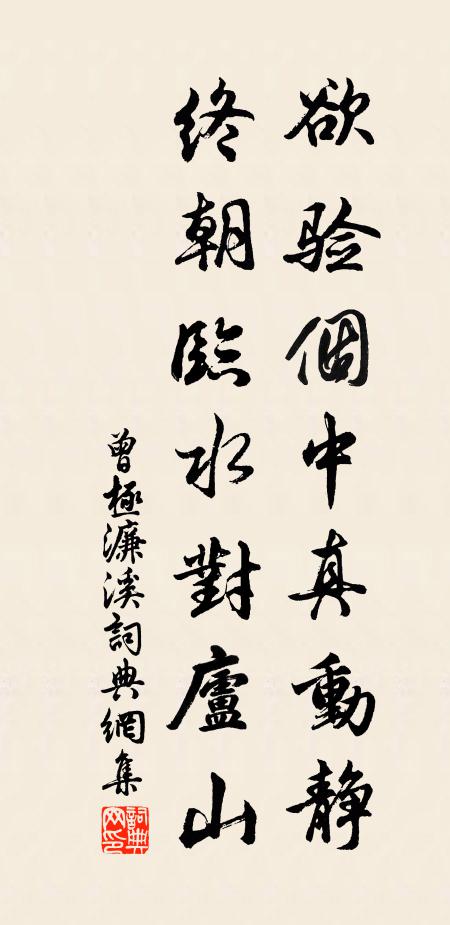 欲验個中真動静
終朝臨水對廬山
曾極濂溪詞典網集
詞典网印